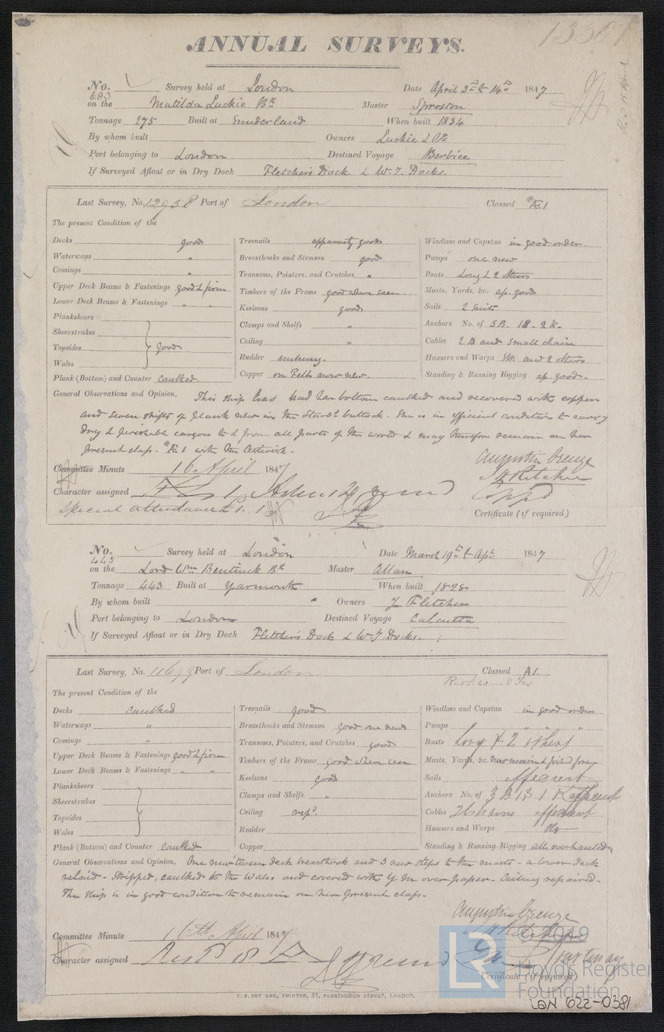 ANNUAL SURVEYS.
No. 483 Survey held at London Date April 2nd & 14th 1847
on the Matilda Luckie Bk Master Sproston
Tonnage 275 Built at Sunderland When built 1834
By whom built Owners Luckie & Co
Port belonging to London Destined Voyage Berbice
If Surveyed Afloat or in Dry Dock Fletchers Dock & W. I. Docks.
Last Survey, No. 12958 Port of London Classed *Æ 1
The present Condition of the
Decks good
Waterways "
Comings "
Upper Deck Beams & Fastenings good & firm
Lower Deck Beams & Fastenings " "
Planksheers
Sheerstrakes
Topsides good
Wales
Plank (Bottom) and Counter caulked.
Treenails apparently good
Breasthooks and Stemson good
Transoms, Pointers, and Crutches "
Timbers of the Frame good where seen
Keelsons good
Clamps and Shelfs "
Ceiling "
Rudder
Copper on Felt now new.
Windlass and Capstan in good order.
Pumps one new
Boats Long & 2 others
Masts, Yards, &c. ap. good
Sails 2 suits
Anchors No. of 5 B. 1 S. 2 K.
Cables 2 B and small chain
Hawsers and Warps Str. and 2 others
Standing & Running Rigging ap. good.
General Observations and Opinion, This ship has had her bottom caulked and recovered with copper
and seven shifts of plank new in the Starbd buttock. She is in efficient condition to carry
dry & perishable cargoes to & from all parts of the world & may therefore remain on her
present class. *Æ 1 with the Asterisk.
Augustin Creuze
Committee Minute 16 April 1847
Character assigned Æ 1
Special attendance
Certificate (if required)
No. 443 Survey held at London Date March 19th & Apr. 1847
on the Lord Wm Bentinck Bk Master Allan
Tonnage 443 Built at Yarmouth When built 1828
By whom built " Owners J Fletcher
Port belonging to London Destined Voyage Calcutta
If Surveyed Afloat or in Dry Dock Fletchers Dock & W I Docks.
Last Survey, No. 11699 Port of London Classed A1.
The present Condition of the
Decks caulked
Waterways "
Comings "
Upper Deck Beams & Fastenings good & firm
Lower Deck Beams & Fastenings " "
Planksheers
Sheerstrakes
Topsides
Wales
Plank (Bottom) and Counter caulked
Treenails good
Breasthooks and Stemson good one new
Transoms, Pointers, and Crutches good
Timbers of the Frame good where seen
Keelsons good
Clamps and Shelfs "
Ceiling repd.
Rudder
Copper
Windlass and Capstan in good order
Pumps " " "
Boats Long & 2 others
Masts, Yards, &c.
Sails efficient
Anchors No. of 3 B 1 S 1 K efficient
Cables efficient
Hawsers and Warps
Standing & Running Rigging all overhauled
General Observations and Opinion, One new lower deck breasthook and 3 new steps to the masts - a lower deck
relaid. Stripped, caulked to the Wales and covered with Y M over paper. Ceiling repaired.
This ship is in good condition to remain on her present class.
Augustin Creuze
Committee Minute 16th April 1847
Character assigned
Certificate (if required)
LR
2019
Lloyd's Register
Foundation
LON 622-0381